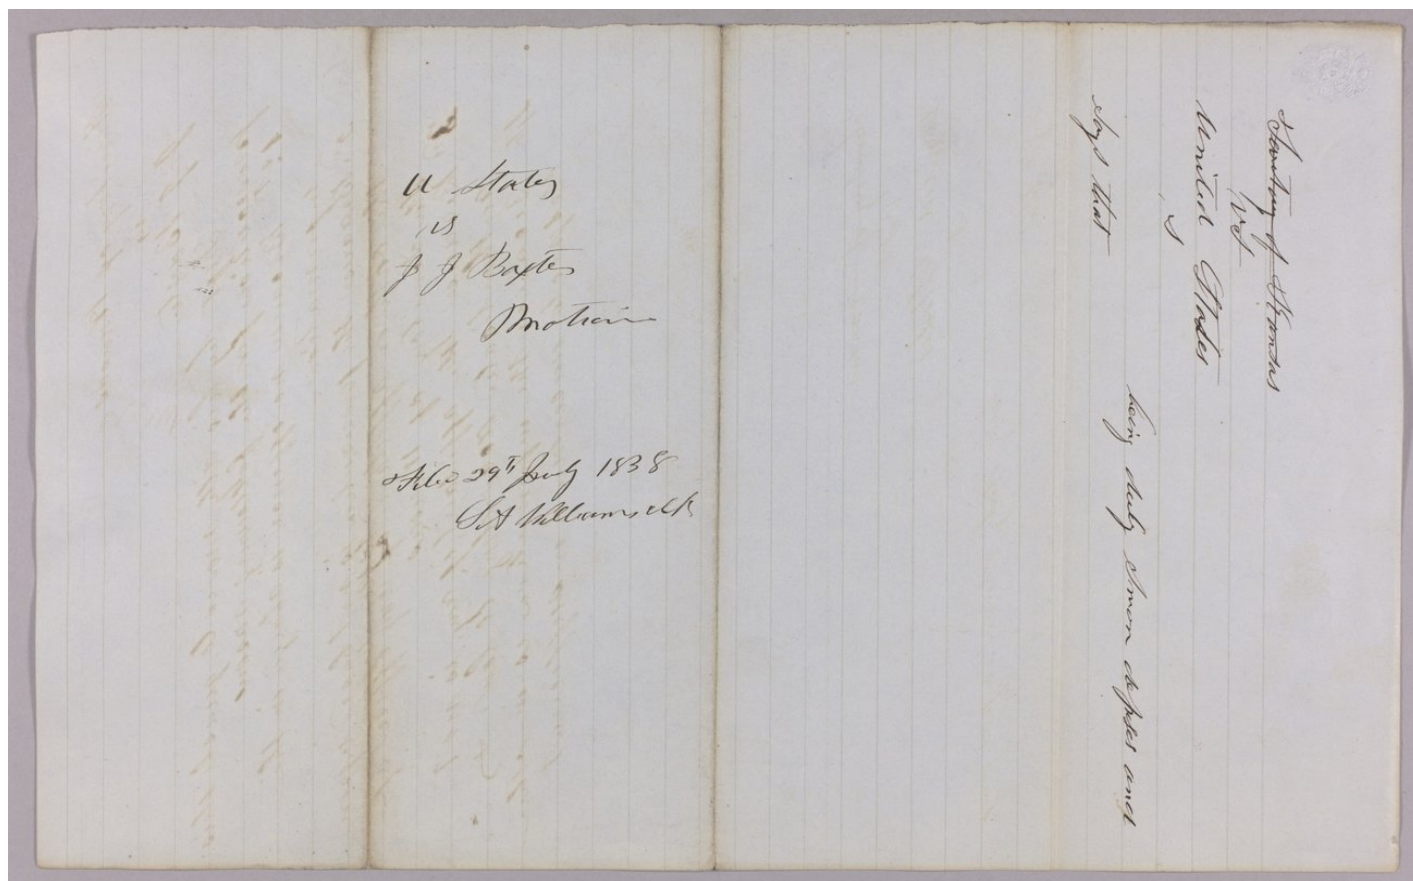 U States
vs
J J Baxter
Motion
Filed 29th July 1838
S A Williams clk
Territory of Kansas
vs
United States
being duly Sworn deposes and
says that